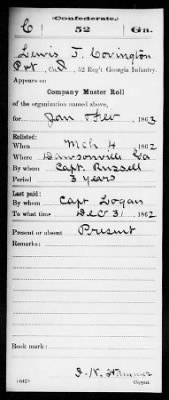 Confederate.
C 52 Ga.
Lewis J. Covington
Pvt, Co. I, 52 Reg't Georgia Infantry.
Appears on
Company Muster Roll
of the organization named above,
for Jan & Feb, 1863
Enlisted:
When Mch 4, 1862
Where Dawsonville Ga
By whom Capt. Russell
Period 3 years
Last paid:
By whom Capt Logan
To what time Dec 31, 1862
Present or absent Present
Remarks:
Book mark:
Copyist.